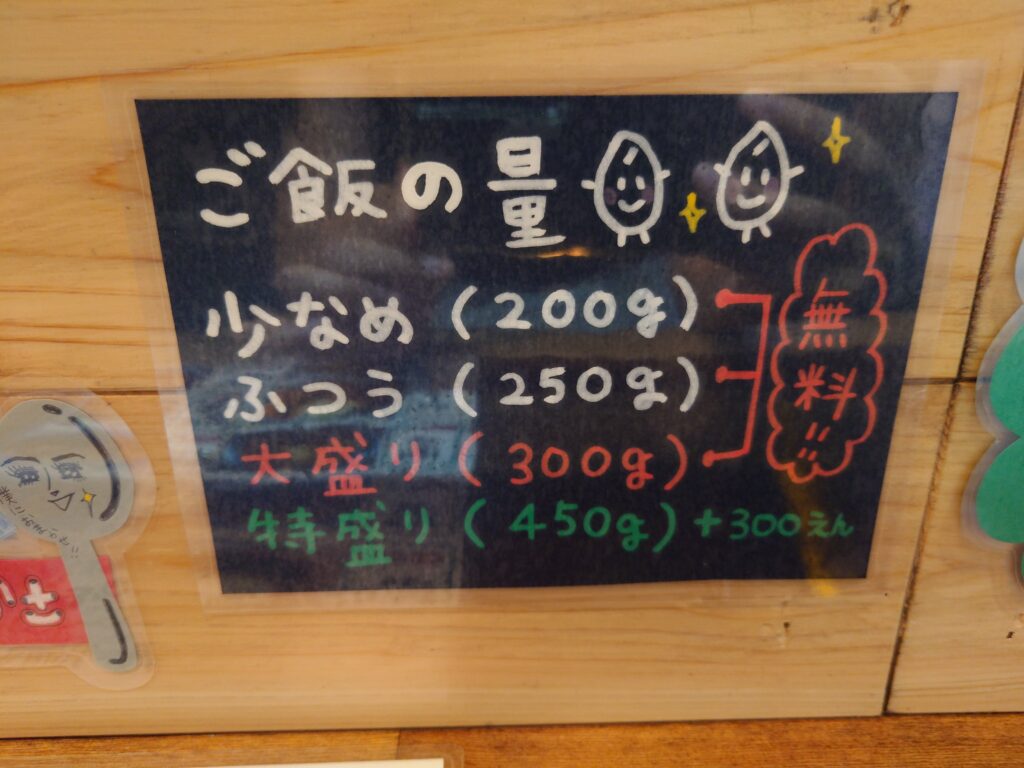 ご飯の量
少なめ (200g)
ふつう (250g)
大盛り (300g)
無料!!
特盛り (450g) +300えん